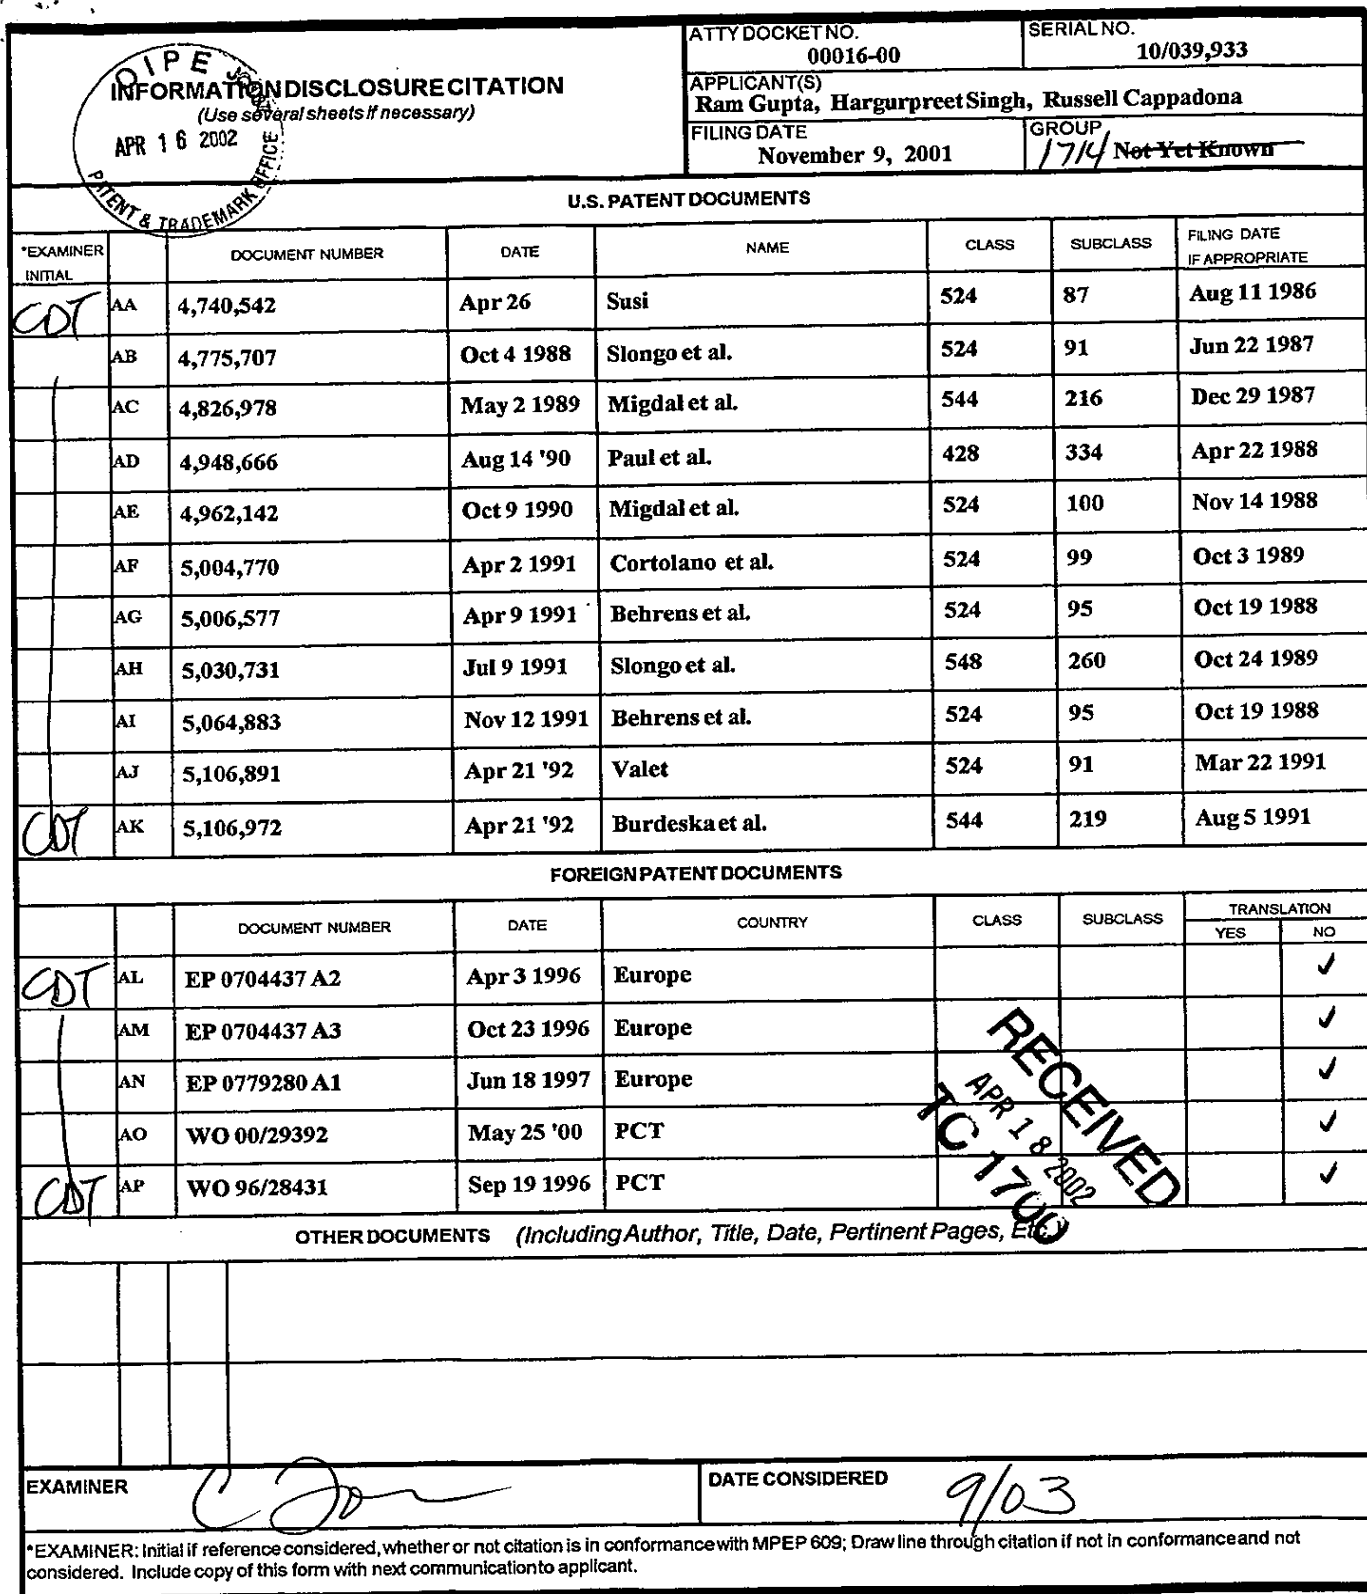 ATTY DOCKET NO.
00016-00
SERIAL NO.
10/039,933
OIPE
INFORMATION DISCLOSURE CITATION
(Use several sheets if necessary)
APR 16 2002
PATENT & TRADEMARK OFFICE
APPLICANT(S)
Ram Gupta, Hargurpreet Singh, Russell Cappadona
FILING DATE
November 9, 2001
GROUP
1714 Not Yet Known
U.S. PATENT DOCUMENTS
*EXAMINER INITIAL DOCUMENT NUMBER DATE NAME CLASS SUBCLASS FILING DATE IF APPROPRIATE
CDT AA 4,740,542 Apr 26 Susi 524 87 Aug 11 1986
AB 4,775,707 Oct 4 1988 Slongo et al. 524 91 Jun 22 1987
AC 4,826,978 May 2 1989 Migdal et al. 544 216 Dec 29 1987
AD 4,948,666 Aug 14 '90 Paul et al. 428 334 Apr 22 1988
AE 4,962,142 Oct 9 1990 Migdal et al. 524 100 Nov 14 1988
AF 5,004,770 Apr 2 1991 Cortolano et al. 524 99 Oct 3 1989
AG 5,006,577 Apr 9 1991 Behrens et al. 524 95 Oct 19 1988
AH 5,030,731 Jul 9 1991 Slongo et al. 548 260 Oct 24 1989
AI 5,064,883 Nov 12 1991 Behrens et al. 524 95 Oct 19 1988
AJ 5,106,891 Apr 21 '92 Valet 524 91 Mar 22 1991
CDT AK 5,106,972 Apr 21 '92 Burdeska et al. 544 219 Aug 5 1991
FOREIGN PATENT DOCUMENTS
DOCUMENT NUMBER DATE COUNTRY CLASS SUBCLASS TRANSLATION YES NO
CDT AL EP 0704437 A2 Apr 3 1996 Europe ✓
AM EP 0704437 A3 Oct 23 1996 Europe ✓
AN EP 0779280 A1 Jun 18 1997 Europe ✓
AO WO 00/29392 May 25 '00 PCT ✓
CDT AP WO 96/28431 Sep 19 1996 PCT ✓
RECEIVED
APR 18 2002
TC 1700
OTHER DOCUMENTS (Including Author, Title, Date, Pertinent Pages, Etc.)
EXAMINER
DATE CONSIDERED 9/03
*EXAMINER: Initial if reference considered, whether or not citation is in conformance with MPEP 609; Draw line through citation if not in conformance and not
considered. Include copy of this form with next communication to applicant.